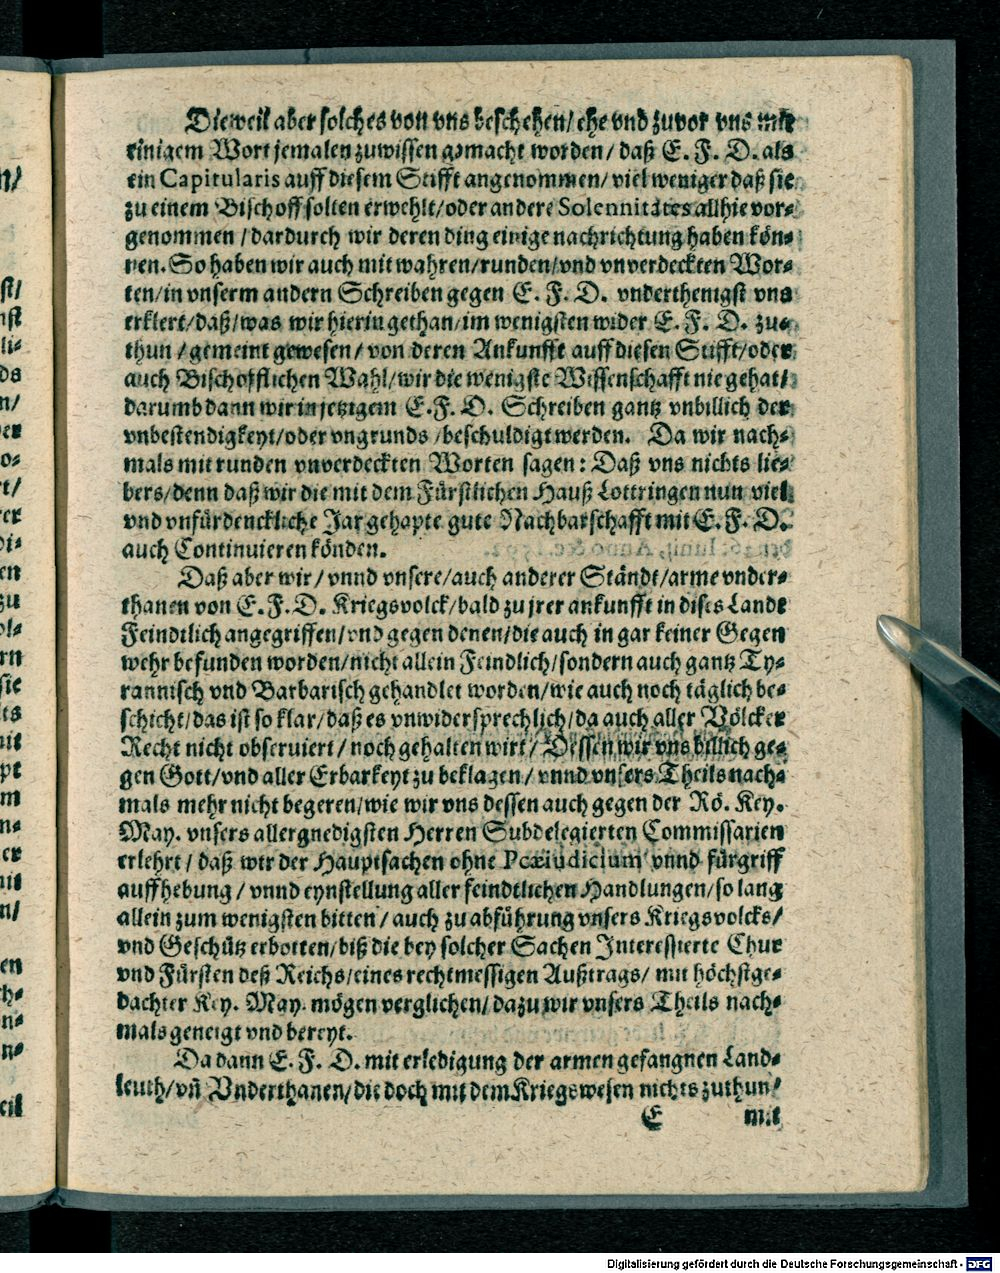 Dieweil aber solches von vns beschehen/ ehe vnd zuvor vns mit
einigem Wort jemalen zuwissen gemacht worden/ daß E. F. D. als
ein Capitularis auff diesem Stifft angenommen/ viel weniger daß sie
zu einem Bischoff solten erwehlt/ oder andere Solennitates allhie vor-
genommen / dardurch wir deren ding einige nachrichtung haben kön-
nen. So haben wir auch mit wahren/ runden/ vnd vnverdeckten Wor-
ten/ in vnserm andern Schreiben gegen E. F. D. vnderthenigst vns
erklert/ daß/ was wir hierin gethan/ im wenigsten wider E. F. D. zu-
thun / gemeint gewesen/ von deren Ankunfft auff diesen Stifft/ oder
auch Bischofflichen Wahl/ wir die wenigste Wissenschafft nie gehat/
darumb dann wir in jetzigem E. F. D. Schreiben gantz vnbillich der
vnbestendigkeyt/ oder vngrunds / beschuldigt werden. Da wir nach-
mals mit runden vnverdeckten Worten sagen: Daß vns nichts lie-
bers/ denn daß wir die mit dem Fürstlichen Hauß Lottringen nun viel
vnd vnfürdenckliche Jar gehapte gute Nachbarschafft mit E. F. D.
auch Continuieren könden.
Daß aber wir/ vnnd vnsere/ auch anderer Ständt/ arme vnder-
thanen von E. F. D. Kriegsvolck/ bald zu jrer ankunfft in dises Landt
Feindtlich angegriffen/ vnd gegen denen/ die auch in gar keiner Gegen
wehr befunden worden/ nicht allein Feindlich/ sondern auch gantz Ty-
rannisch vnd Barbarisch gehandlet worden/ wie auch noch täglich be-
schicht/ das ist so klar/ daß es vnwidersprechlich/ da auch aller Völcker
Recht nicht obseruiert / noch gehalten wirt/ Dessen wir vns billich ge-
gen Gott/ vnd aller Erbarkeyt zu beklagen/ vnnd vnsers Theils nach-
mals mehr nicht begeren/ wie wir vns dessen auch gegen der Rö. Key.
May. vnsers allergnedigsten Herren Subdelegierten Commissarien
erlehrt / daß wir der Hauptsachen ohne Præiudicium vnnd fürgriff
auffhebung / vnnd eynstellung aller feindtlichen Handlungen/ so lang
allein zum wenigsten bitten / auch zu abführung vnsers Kriegsvolcks/
vnd Geschütz erbotten/ biß die bey solcher Sachen Interessierte Chur
vnd Fürsten deß Reichs/ eines rechtmessigen Außtrags/ mit höchstge-
dachter Key. May. mögen verglichen/ dazu wir vnsers Theils nach-
mals geneigt vnd bereyt.
Da dann E. F. D. mit erledigung der armen gefangnen Land-
leuth/ vñ Vnderthanen/ die doch mit dem Kriegswesen nichts zuthun/
E mit
Digitalisierung gefördert durch die Deutsche Forschungsgemeinschaft - DFG